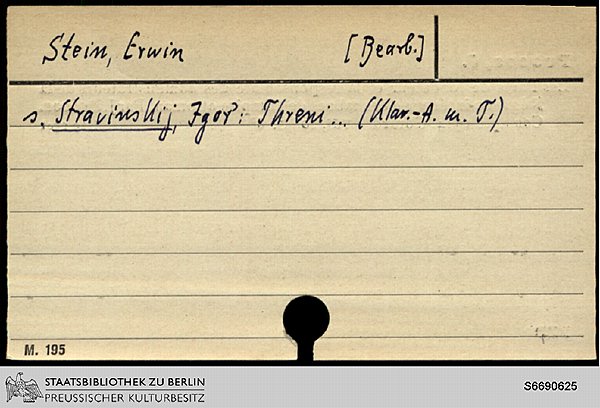 Stein, Erwin [Bearb.]
s. Stravinskij, Igoŕ: Threni ... (Klav.-A. m. T.)
M. 195
STAATSBIBLIOTHEK ZU BERLIN
PREUSSISCHER KULTURBESITZ
S6690625